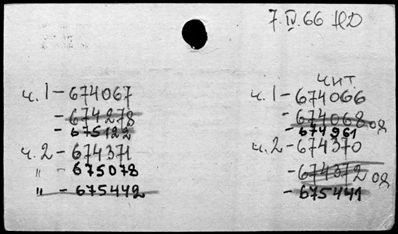 7.IV.66 НО
ч.1-674067
-674278
-675122
ч.2-674371
-675078
" -675442
чит
ч.1-674066
-674068 од
-674961
ч.2-674370
-674372 од
-675441